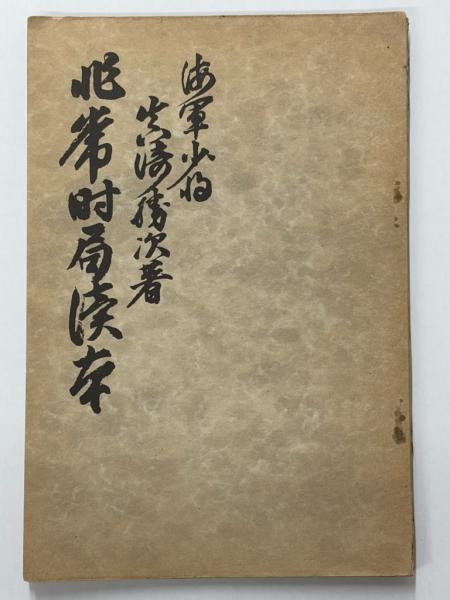 海軍少将
真崎勝次著
非常時局読本